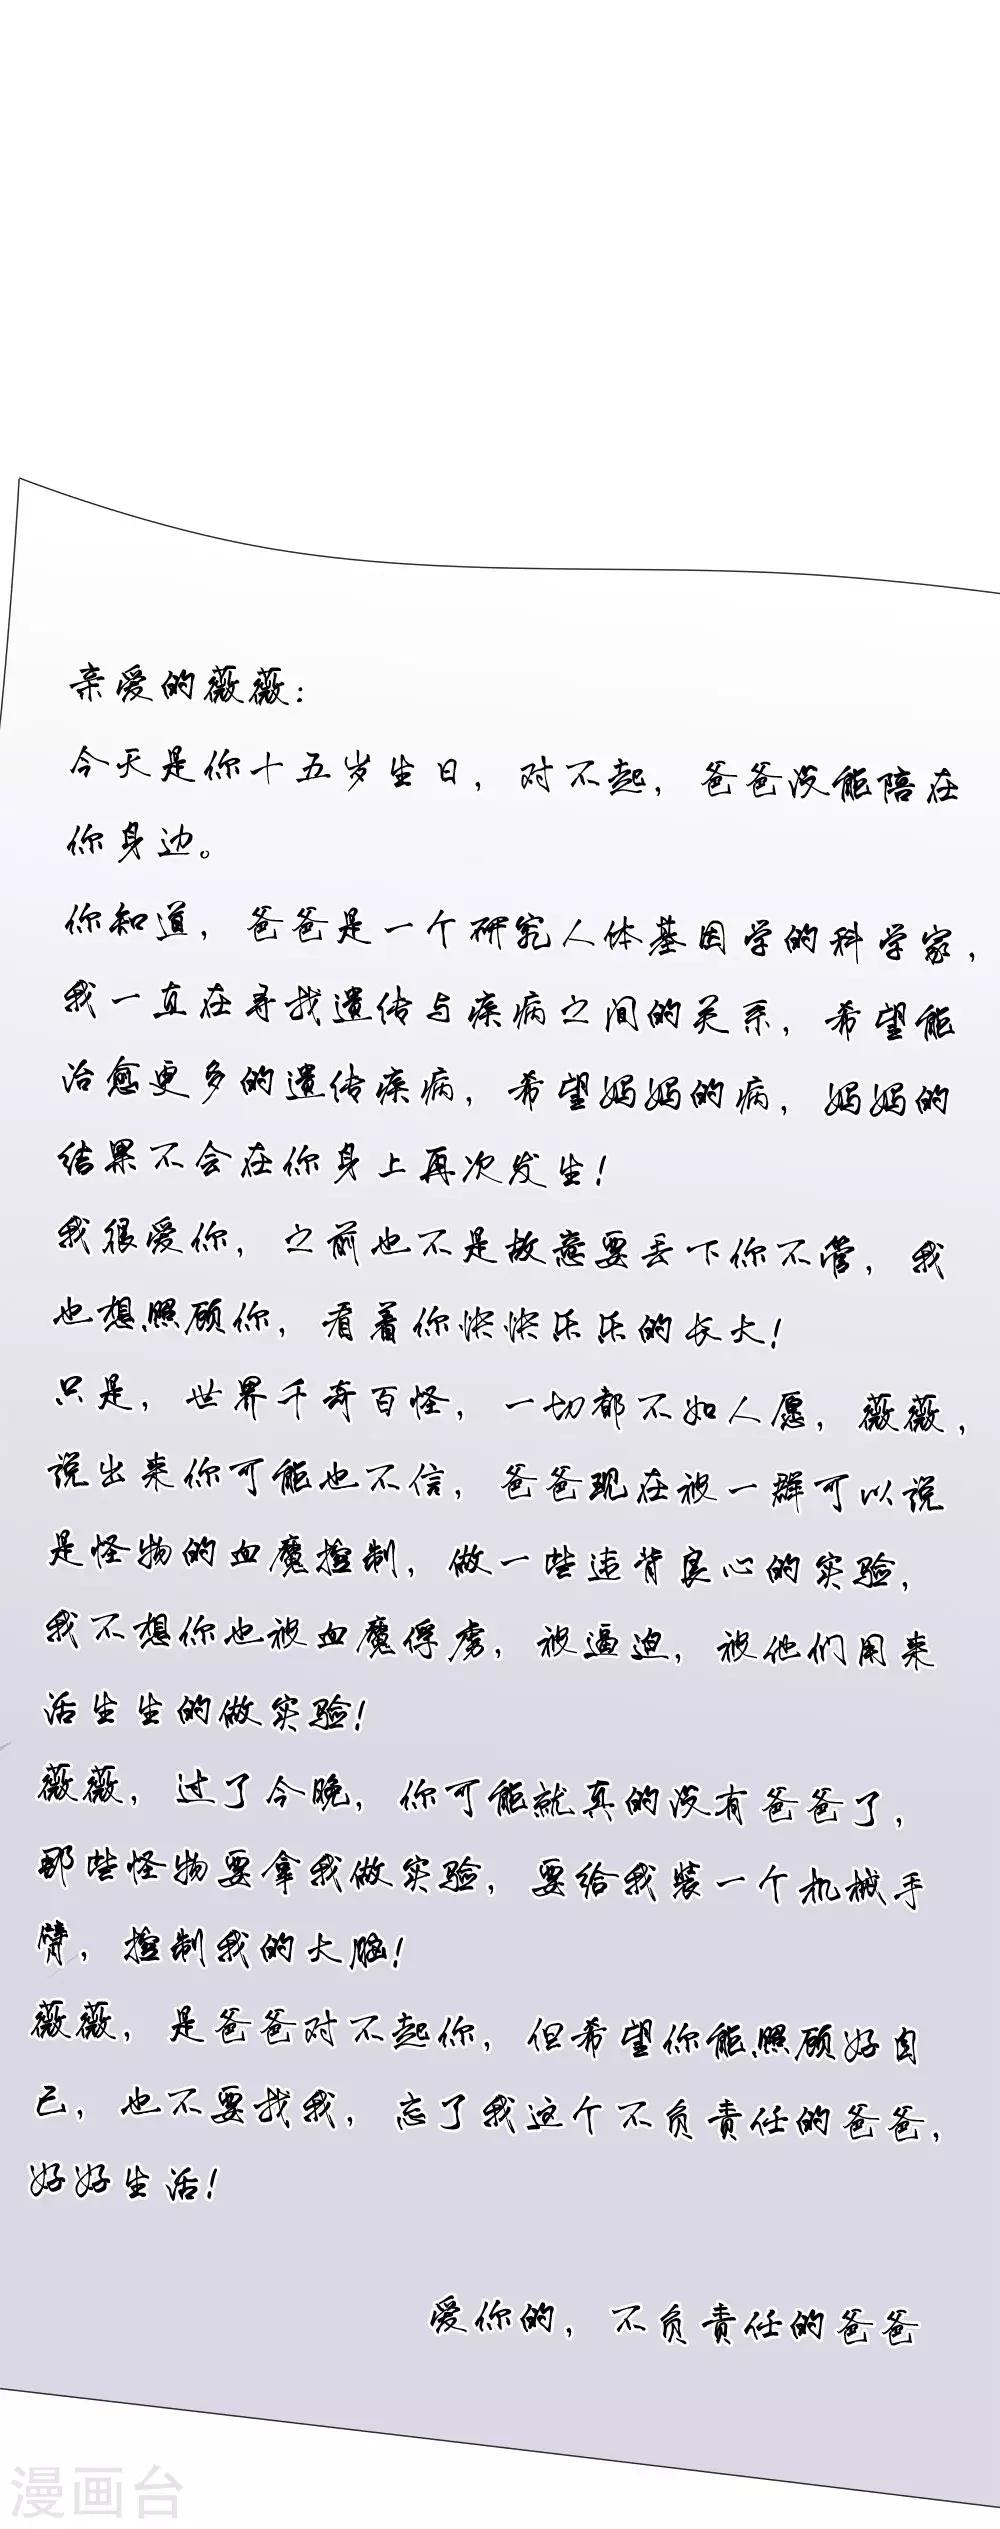 亲爱的薇薇：
今天是你十五岁生日，对不起，爸爸没能陪在
你身边。
你知道，爸爸是一个研究人体基因学的科学家，
我一直在寻找遗传与疾病之间的关系，希望能
治愈更多的遗传疾病，希望妈妈的病，妈妈的
结果不会在你身上再次发生！
我很爱你，之前也不是故意要丢下你不管，我
也想照顾你，看着你快快乐乐的长大！
只是，世界千奇百怪，一切都不如人愿，薇薇，
说出来你可能也不信，爸爸现在被一群可以说
是怪物的血魔控制，做一些违背良心的实验，
我不想你也被血魔俘虏，被逼迫，被他们用来
活生生的做实验！
薇薇，过了今晚，你可能就真的没有爸爸了，
那些怪物要拿我做实验，要给我装一个机械手
臂，控制我的大脑！
薇薇，是爸爸对不起你，但希望你能照顾好自
己，也不要找我，忘了我这个不负责任的爸爸，
好好生活！
爱你的，不负责任的爸爸
漫画台